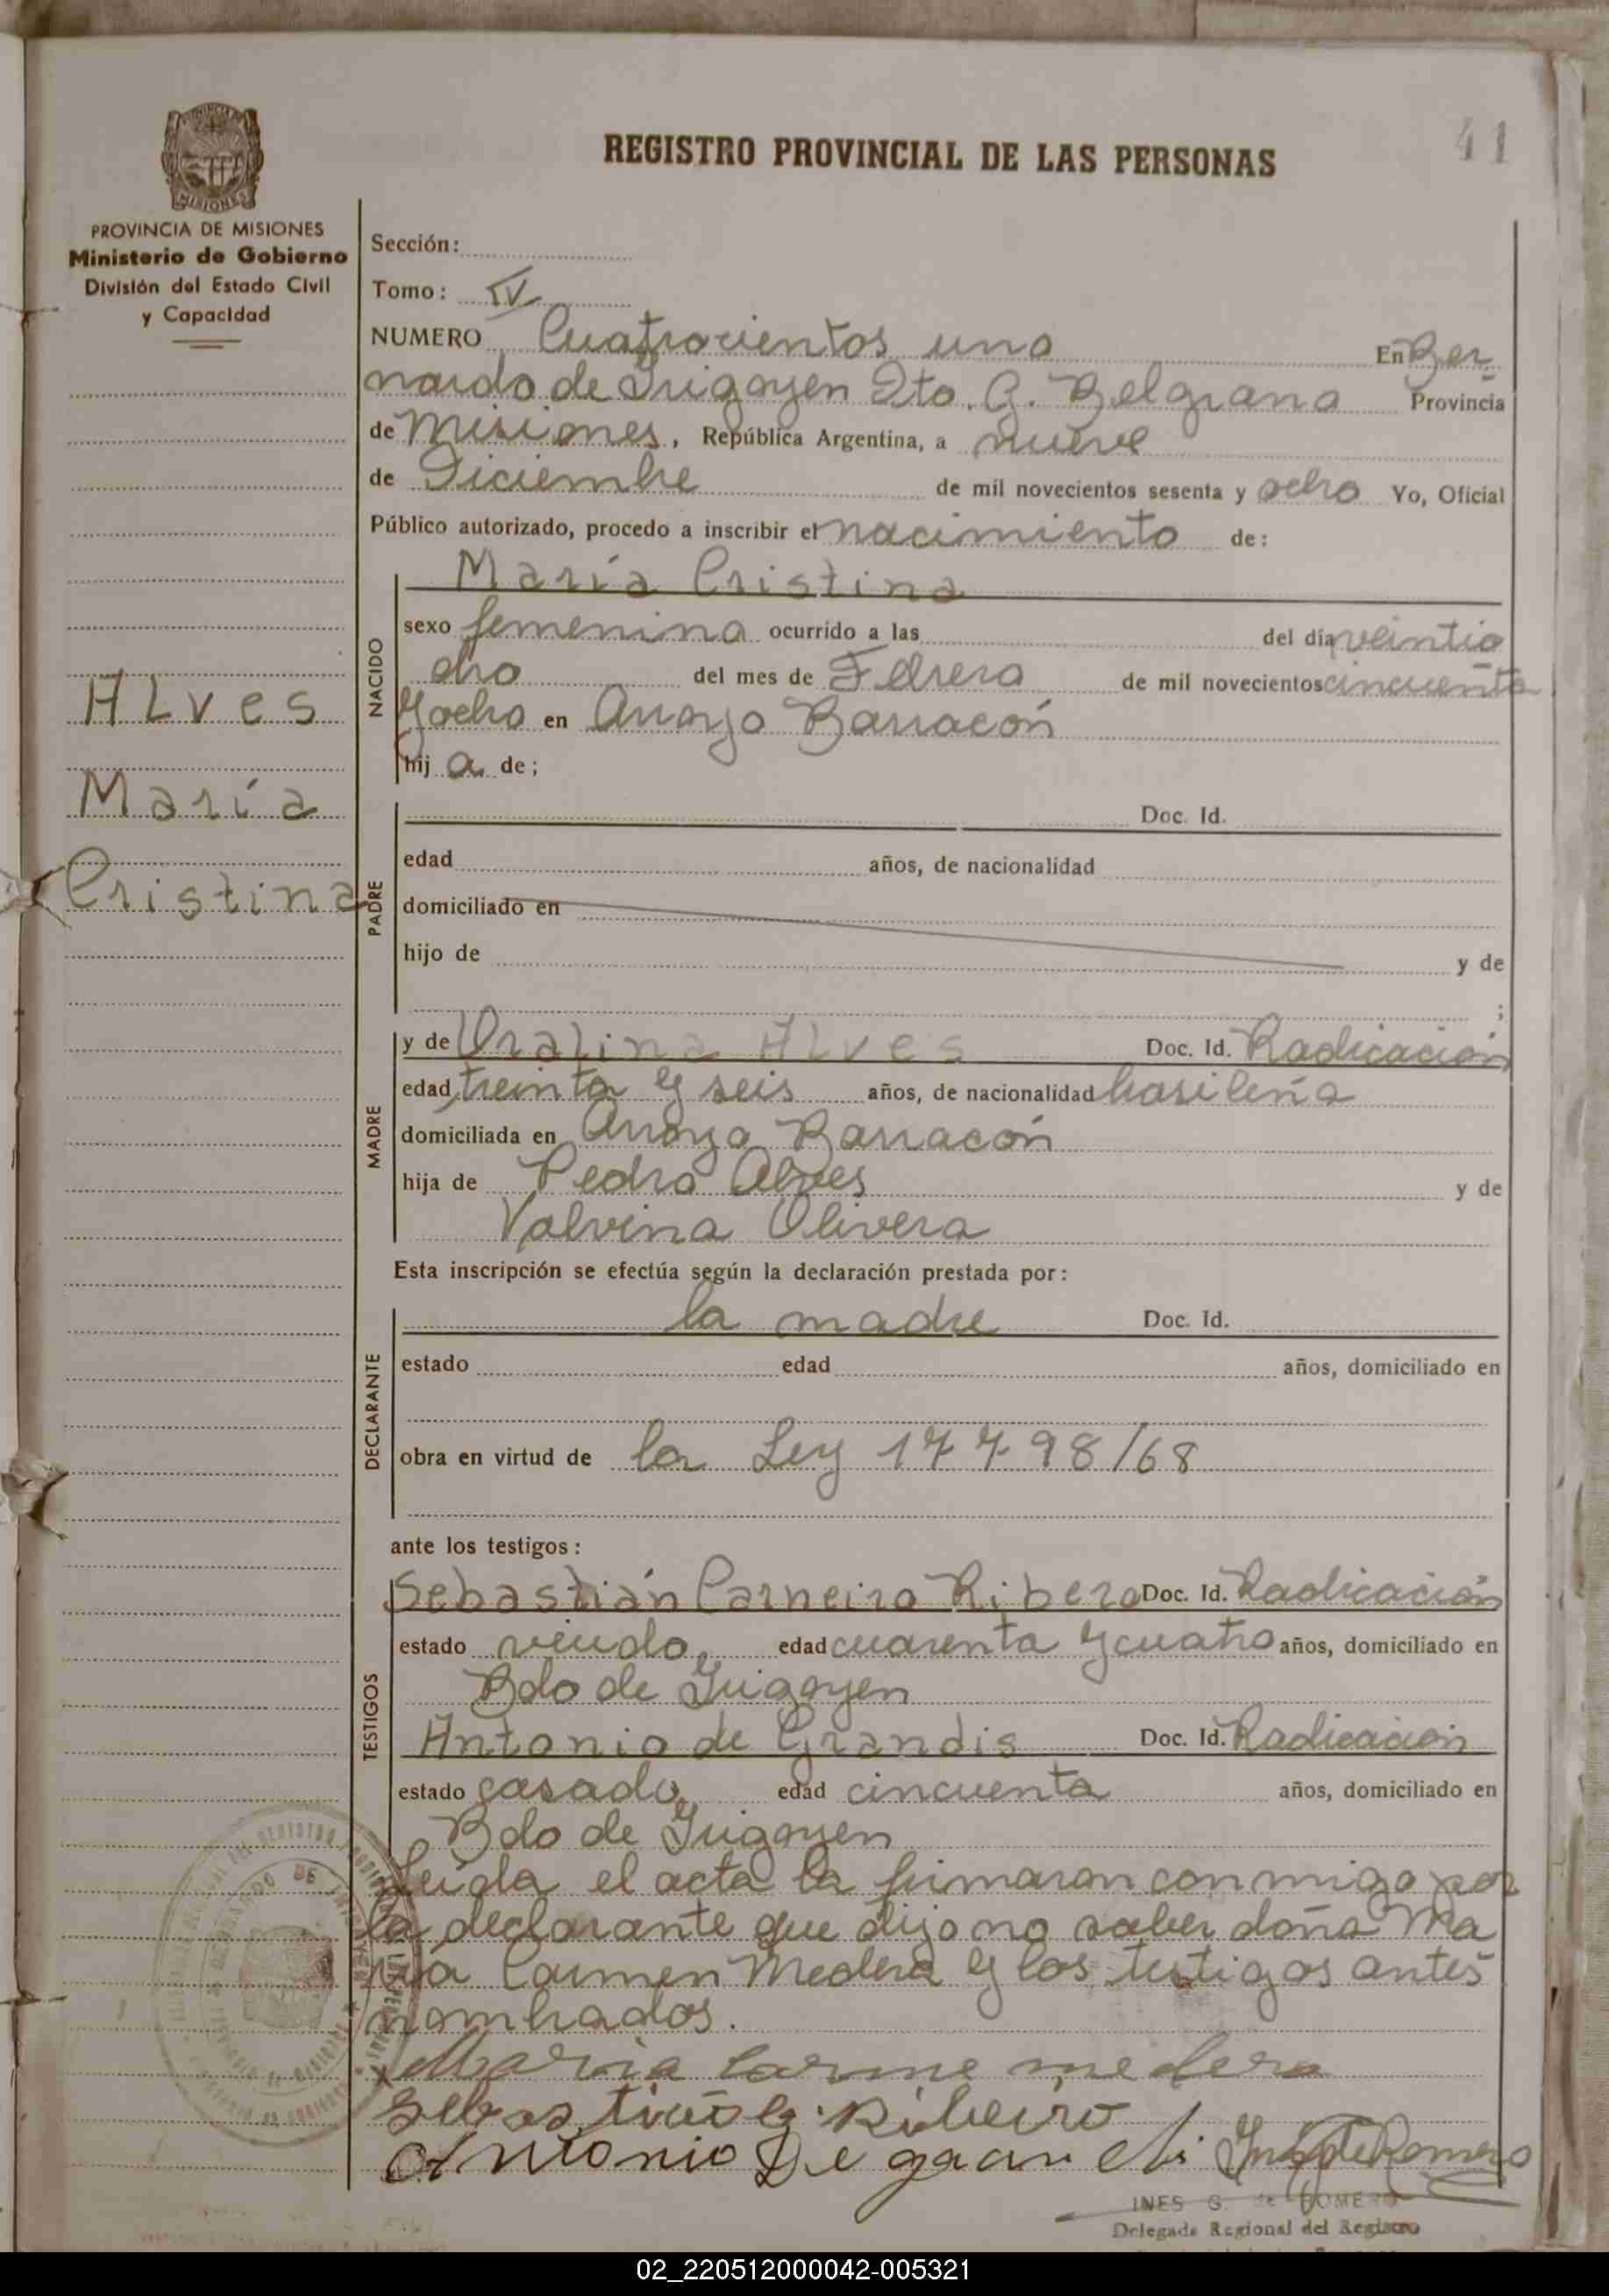 41
REGISTRO PROVINCIAL DE LAS PERSONAS
PROVINCIA DE MISIONES
Ministerio de Gobierno
División del Estado Civil
y Capacidad
Alves
María
Cristina
Sección:
Tomo: IV
NUMERO Cuatrocientos uno En Ber
nardo de Irigoyen Dto. G. Belgrano Provincia
de Misiones, República Argentina, a nueve
de Diciembre de mil novecientos sesenta y ocho Yo, Oficial
Público autorizado, procedo a inscribir el nacimiento de:
María Cristina
NACIDO
sexo femenino ocurrido a las del día veintio
cho del mes de Febrero de mil novecientos cincuenta
y ocho en Arroyo Barracón
hij a de;
PADRE
Doc. Id.
edad años, de nacionalidad
domiciliado en
hijo de y de
;
MADRE
y de Oralina Alves Doc. Id. Radicación
edad treinta y seis años, de nacionalidad brasileña
domiciliada en Arroyo Barracón
hija de Pedro Alves y de
Valvina Olivera
Esta inscripción se efectúa según la declaración prestada por:
DECLARANTE
la madre Doc. Id.
estado edad años, domiciliado en
obra en virtud de la Ley 17798/68
ante los testigos:
TESTIGOS
Sebastián Carneiro Ribero Doc. Id. Radicación
estado viudo, edad cuarenta y cuatro años, domiciliado en
Bdo de Irigoyen
Antonio de Grandis Doc. Id. Radicación
estado casado, edad cincuenta años, domiciliado en
Bdo de Irigoyen
Leída el acta la firmaron conmigo por
la declarante que dijo no saber doña Ma
ria Carmen Medera y los testigos antes
nombrados.
Maria Carme medera
Ribeiro
Antonio De
INES G. de ROMERO
Delegada Regional del Registro
02_220512000042-005321